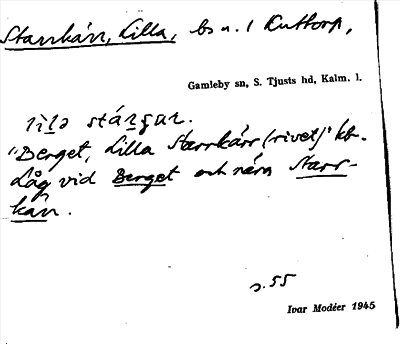 Starrkärr, Lilla, bs u. 1 Kuttorp,
Gamleby sn, S. Tjusts hd, Kalm. l.
"Berget, Lilla Starrkärr (rivet)" kb.
Låg vid Berget och nära Starr-
kärr.
s. 55
Ivar Modéer 1945